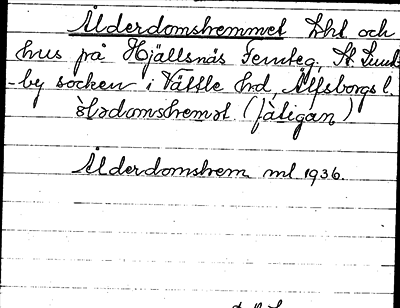 Ålderdomshemmet Lht och
hus på Hjällsnäs Femteg. St. Lund
-by socken i Vättle hd, Älfsborgs l.
ålədomshemət. (fàtigan)
Ålderdomshem ml 1936.